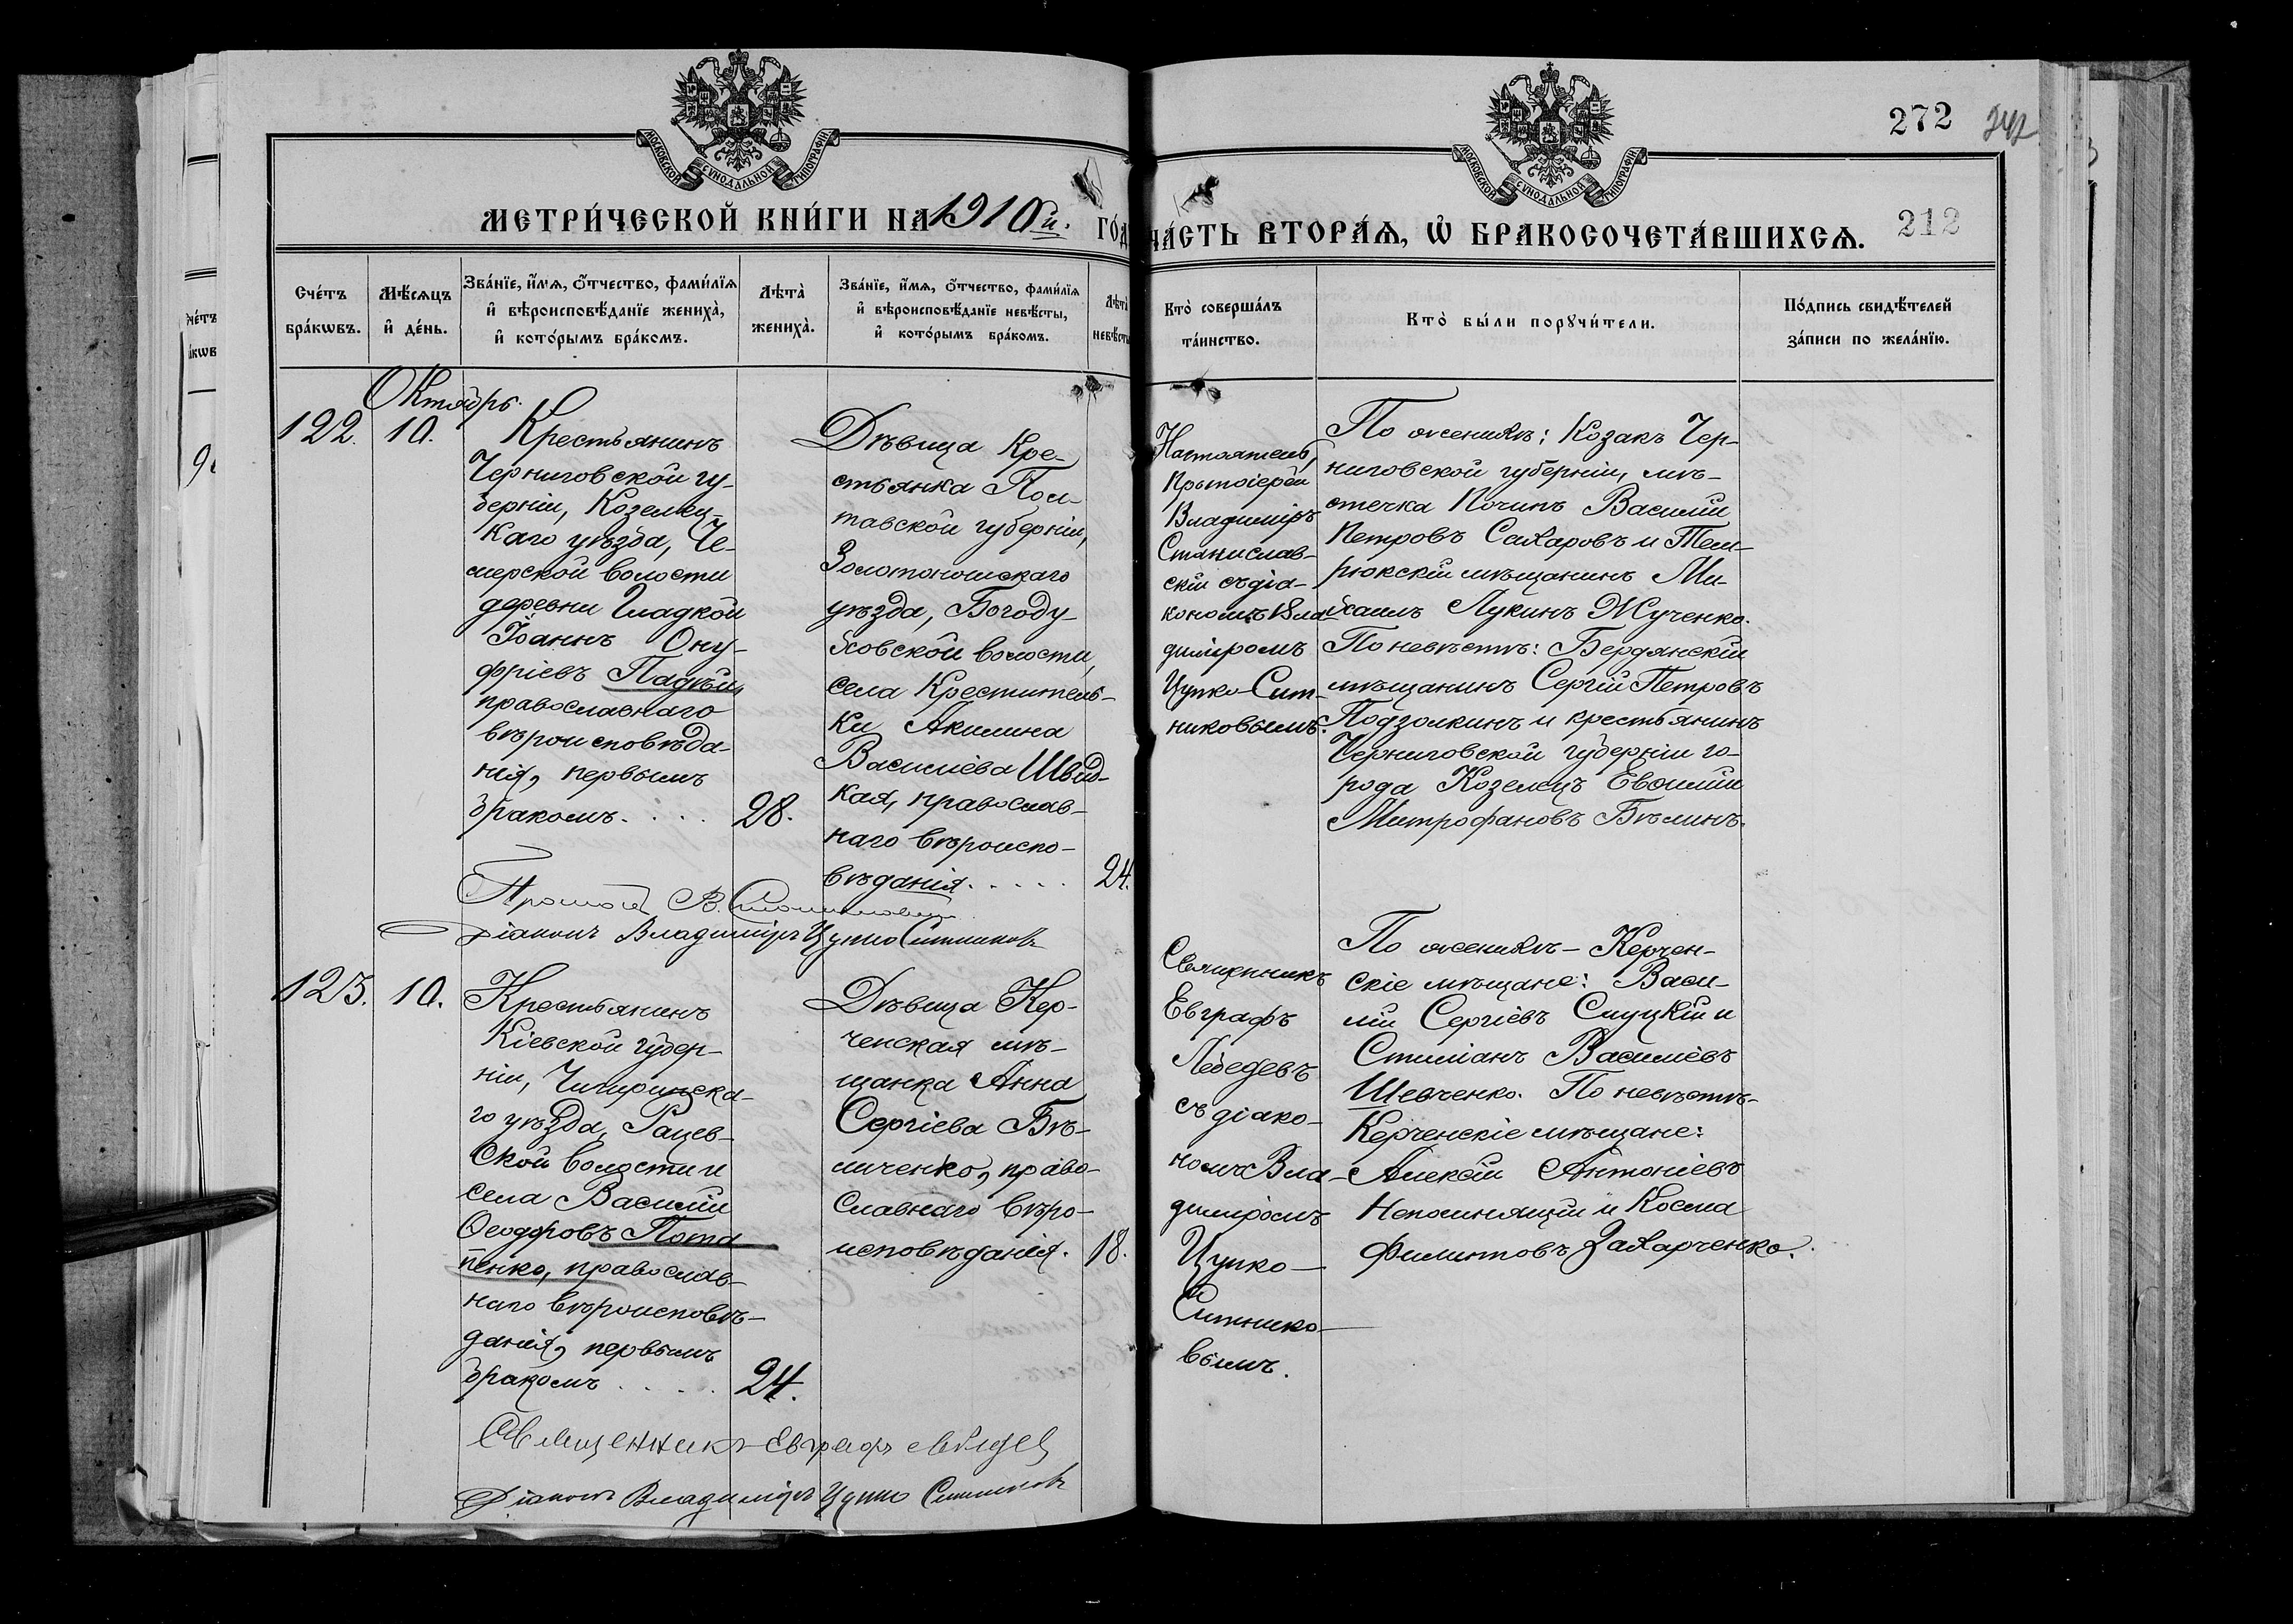 272
242
МОСКОВСКОЙ СѴНОДАЛЬНОЙ ТИПОГРАФІИ
МОСКОВСКОЙ СѴНОДАЛЬНОЙ ТИПОГРАФІИ
МЕТРИ́ЧЕСКОЙ КНИ́ГИ НА 1910й. ГО́Д
ЧА́СТЬ ВТОРА́Ѧ, Ѡ҆ БРАКОСОЧЕТА́ВШИХСѦ.
212
Сче́тъ
бра́кѡвъ.
Мѣ́сѧцъ
и҆ де́нь.
Зва́нїе, и҆́мѧ, ѻ҆́тчество, фами́лїѧ
и҆ вѣроисповѣ́данїе жениха̀,
и҆ кото́рымъ бра́комъ.
Лѣта̀
жениха̀.
Зва́нїе, и҆́мѧ, ѻ҆́тчество, фами́лїѧ
и҆ вѣроисповѣ́данїе невѣ́сты,
и҆ кото́рымъ бра́комъ.
Лѣта̀
невѣ́сты
Кто̀ соверша́лъ
та́инство.
Кто̀ бы́ли порꙋчи́тели.
По́дпись свидѣ́телей
за́писи по жела́нїю.
Октябрь.
122.
10.
Крестьянинъ
Черниговской гу-
берніи, Козелец-
каго уѣзда, Че-
мерской волости
деревни Гладкой
Іоаннъ Ону-
фріевъ
православнаго
вѣроисповѣда-
нія, первымъ
бракомъ. . . . .
28.
Дѣвица Кре-
стьянка Пол-
тавской губерніи,
Золотоношскаго
уѣзда, Богоду-
ховской волости,
села Креститель-
ки Акилина
Василіева Швид-
кая, православ-
наго вѣроиспо-
вѣданія. . . . .
24.
Настоятель,
Протоіерей
Владиміръ
Станислав-
скій съ діа-
кономъ Вла-
диміромъ
Цупко-Сит-
никовымъ.
По женихѣ: Козакъ Чер-
ниговской губерніи, мѣ-
стечка Почипъ Василій
Петровъ Сахаровъ и Тем-
рюкскій мѣщанинъ Ми-
хаилъ Лукинъ Жученко.
По невѣстѣ: Бердянскій
мѣщанинъ Сергій Петровъ
Подзолкинъ и крестьянинъ
Черниговской губерніи го-
рода Козелецъ Евѳимій
Митрофановъ Бѣлинъ.
В.
Діаконъ Владиміръ Цупко Ситниковъ
123.
10.
Крестьянинъ
Кіевской губер-
ніи, Чигиринска-
го уѣзда, Рацев-
ской волости и
села Василій
Ѳеодоровъ Пота-
пенко, православ-
наго вѣроисповѣ-
данія, первымъ
бракомъ . . . . .
24.
Дѣвица Кер-
ченская мѣ-
щанка Анна
Сергіева Бѣ-
личенко, право-
славнаго вѣро-
исповѣданія.
18.
Священникъ
Евграфъ
Лебедевъ
съ діако-
номъ Вла-
диміромъ
Цупко-
Ситнико-
вымъ.
По женихѣ - Керчен-
скіе мѣщане: Васи-
лій Сергіевъ Слуцкій и
Стиліанъ Василіевъ
Шевченко. По невѣстѣ-
Керченскіе мѣщане:
Алексій Антоніевъ
Непомнящій и Косма
Филипповъ Захарченко.
Священникъ Евграфъ Лебедев
Діаконъ Владиміръ Цупко Ситниковъ